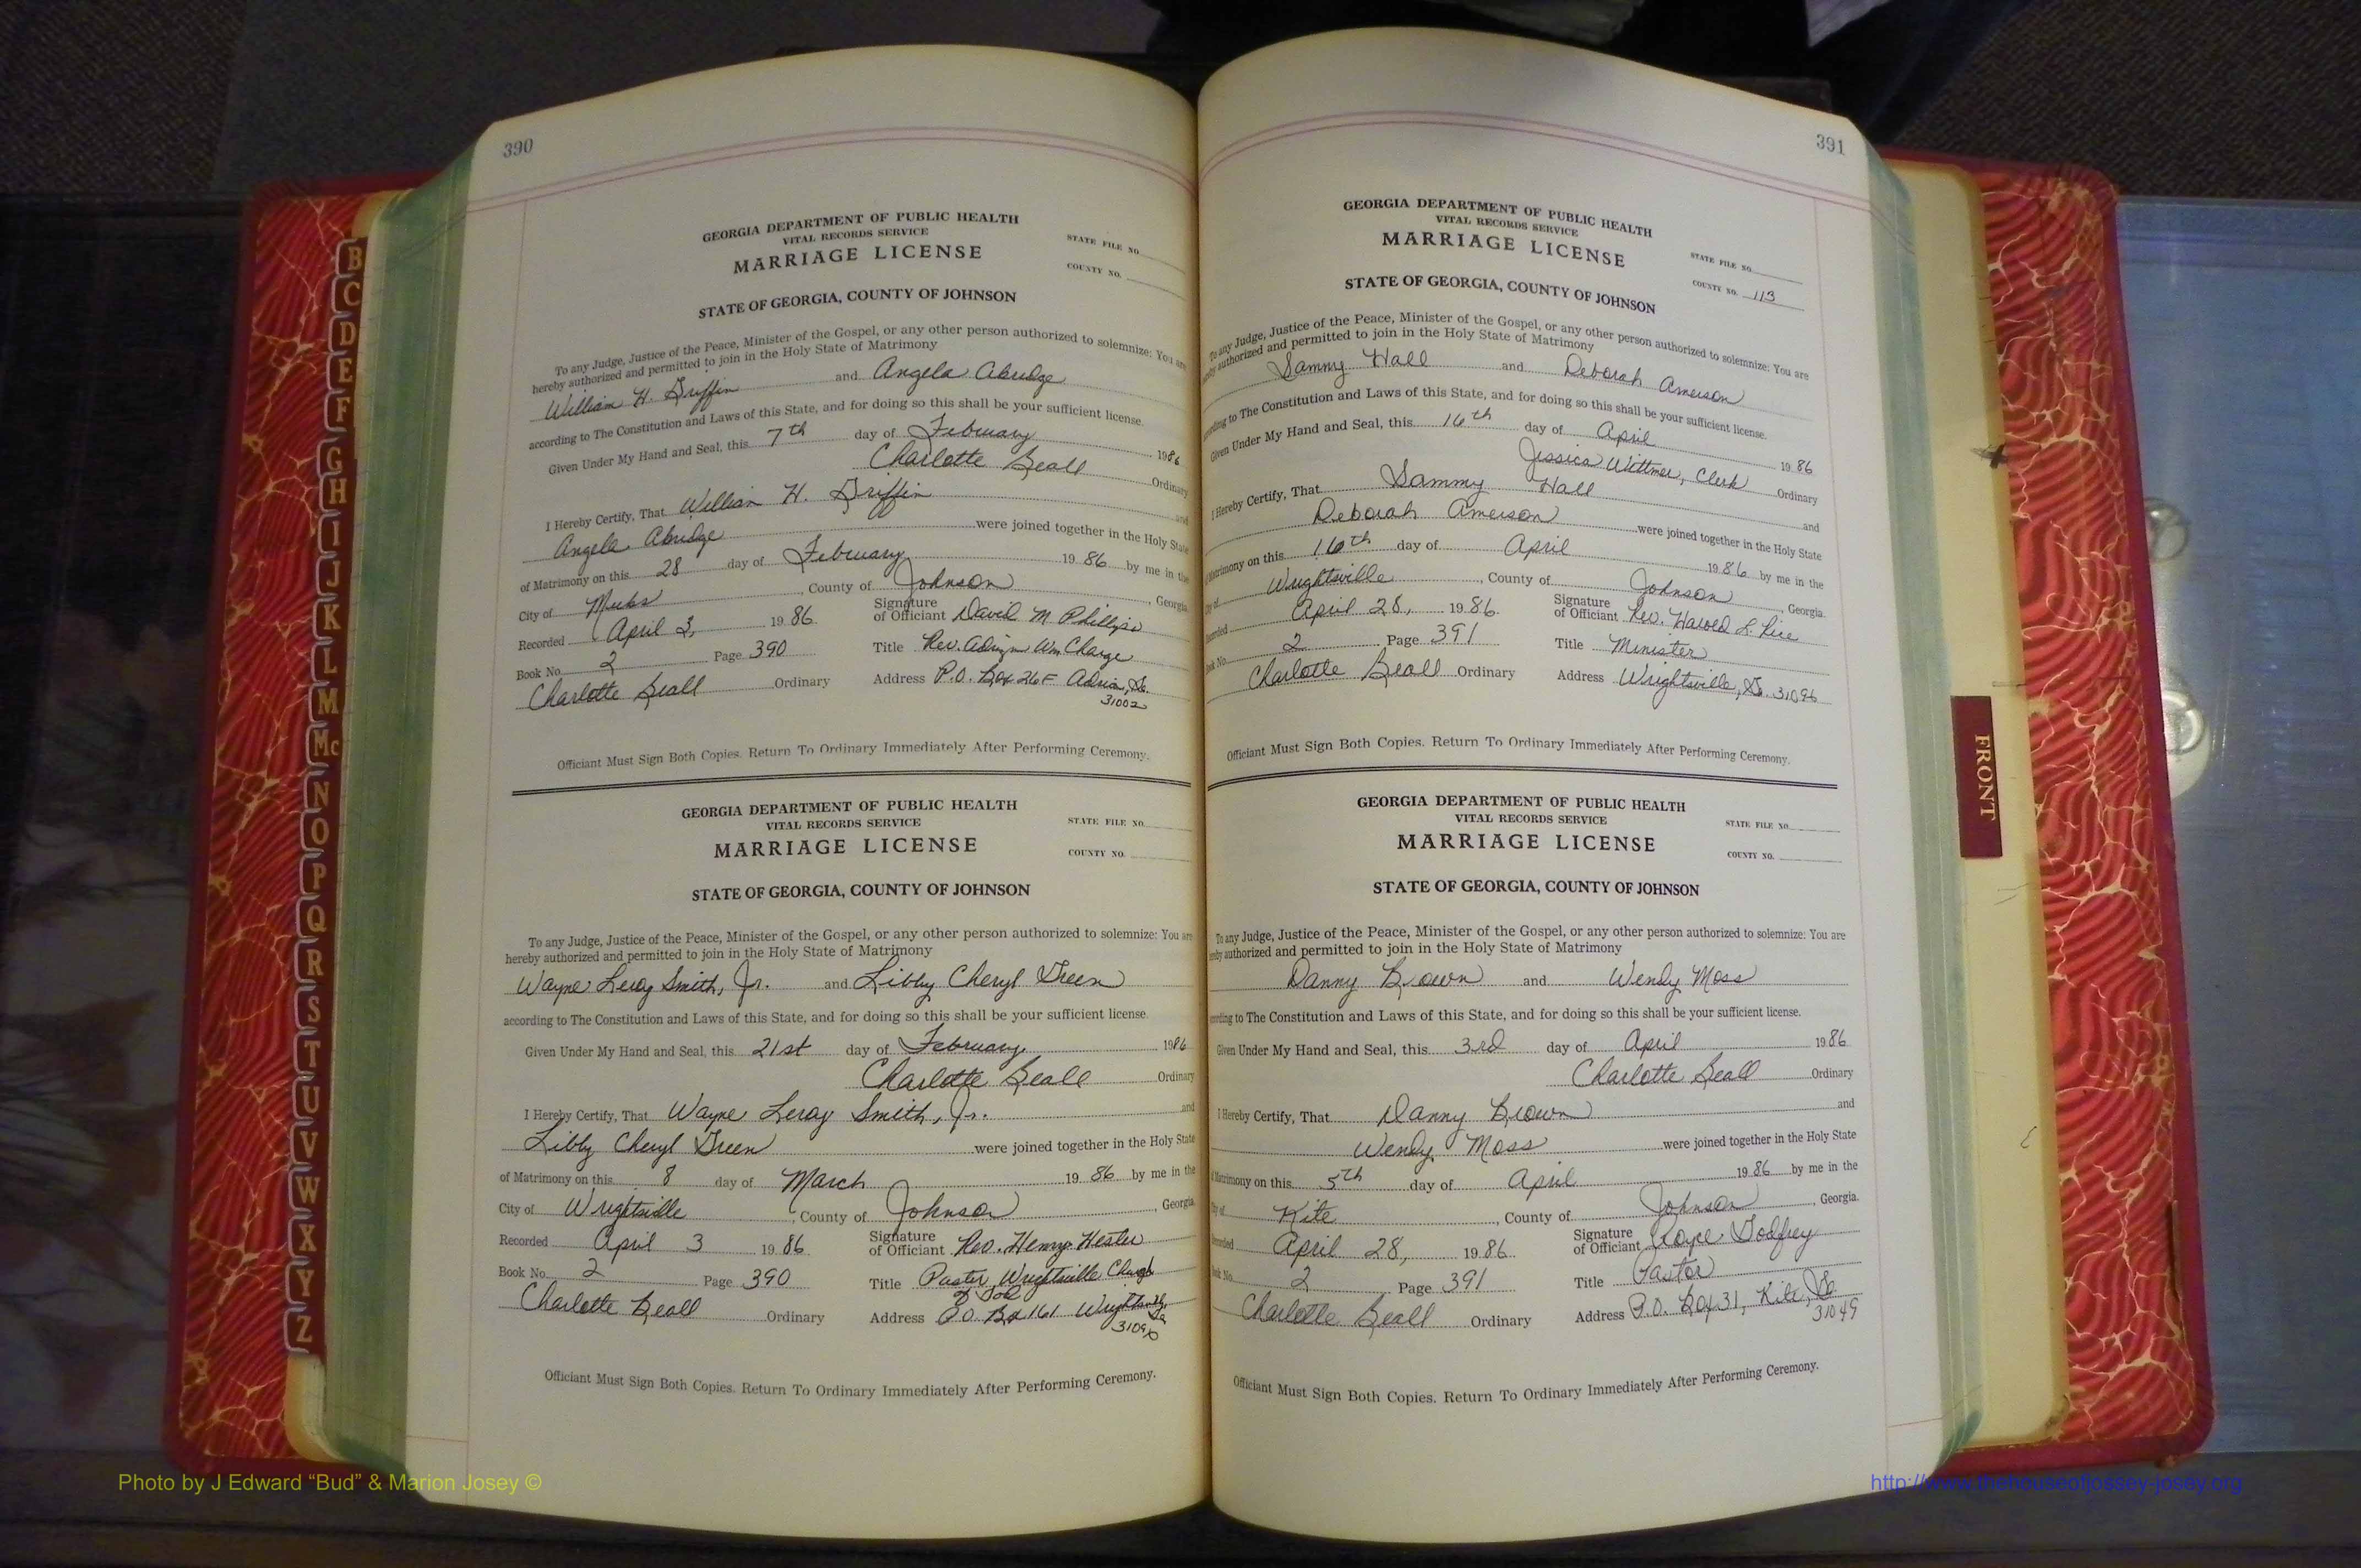 390
GEORGIA DEPARTMENT OF PUBLIC HEALTH
VITAL RECORDS SERVICE
MARRIAGE LICENSE
STATE FILE NO.
COUNTY NO.
STATE OF GEORGIA, COUNTY OF JOHNSON
To any Judge, Justice of the Peace, Minister of the Gospel, or any other person authorized to solemnize: You are
hereby authorized and permitted to join in the Holy State of Matrimony
William H. Griffin and Angela
according to The Constitution and Laws of this State, and for doing so this shall be your sufficient license.
Given Under My Hand and Seal, this 7th day of February 1986
Charlotte Beall Ordinary
I Hereby Certify, That William H. Griffin and
Angela were joined together in the Holy State
of Matrimony on this 28 day of February 19 86 by me in the
City of Meeks, County of Johnson, Georgia
Recorded April 3, 19 86 Signature of Officiant David M Phillips
Book No. 2 Page 390 Title Rev. Charge
Charlotte Beall Ordinary Address P.O. Box 26F Adrian, Ga.
31002
Officiant Must Sign Both Copies. Return To Ordinary Immediately After Performing Ceremony.
GEORGIA DEPARTMENT OF PUBLIC HEALTH
VITAL RECORDS SERVICE
MARRIAGE LICENSE
STATE FILE NO.
COUNTY NO.
STATE OF GEORGIA, COUNTY OF JOHNSON
To any Judge, Justice of the Peace, Minister of the Gospel, or any other person authorized to solemnize: You are
hereby authorized and permitted to join in the Holy State of Matrimony
Wayne Leroy Smith, Jr. and Libby Cheryl Green
according to The Constitution and Laws of this State, and for doing so this shall be your sufficient license.
Given Under My Hand and Seal, this 21st day of February 1986
Charlotte Beall Ordinary
I Hereby Certify, That Wayne Leroy Smith, Jr. and
Libby Cheryl Green were joined together in the Holy State
of Matrimony on this 8 day of March 19 86 by me in the
City of Wrightsville, County of Johnson, Georgia
Recorded April 3 19 86 Signature of Officiant Rev. Henry Hester
Book No. 2 Page 390 Title Pastor, Wrightsville Church
of God
Charlotte Beall Ordinary Address P.O. Box 161 Wrightsville, Ga
31096
Officiant Must Sign Both Copies. Return To Ordinary Immediately After Performing Ceremony.
391
GEORGIA DEPARTMENT OF PUBLIC HEALTH
VITAL RECORDS SERVICE
MARRIAGE LICENSE
STATE FILE NO.
COUNTY NO. 113
STATE OF GEORGIA, COUNTY OF JOHNSON
To any Judge, Justice of the Peace, Minister of the Gospel, or any other person authorized to solemnize: You are
hereby authorized and permitted to join in the Holy State of Matrimony
Sammy Hall and Deborah Amerson
according to The Constitution and Laws of this State, and for doing so this shall be your sufficient license.
Given Under My Hand and Seal, this 16th day of April 19 86
Jessica Wittmer, Clerk Ordinary
I Hereby Certify, That Sammy Hall and
Deborah Amerson were joined together in the Holy State
of Matrimony on this 16th day of April 19 86 by me in the
City of Wrightsville, County of Johnson, Georgia
Recorded April 28, 19 86 Signature of Officiant Rev. Harold L. Rice
Book No. 2 Page 391 Title Minister
Charlotte Beall Ordinary Address Wrightsville, Ga. 31096
Officiant Must Sign Both Copies. Return To Ordinary Immediately After Performing Ceremony.
GEORGIA DEPARTMENT OF PUBLIC HEALTH
VITAL RECORDS SERVICE
MARRIAGE LICENSE
STATE FILE NO.
COUNTY NO.
STATE OF GEORGIA, COUNTY OF JOHNSON
To any Judge, Justice of the Peace, Minister of the Gospel, or any other person authorized to solemnize: You are
hereby authorized and permitted to join in the Holy State of Matrimony
Danny Brown and Wendy Moss
according to The Constitution and Laws of this State, and for doing so this shall be your sufficient license.
Given Under My Hand and Seal, this 3rd day of April 19 86
Charlotte Beall Ordinary
I Hereby Certify, That Danny Brown and
Wendy Moss were joined together in the Holy State
of Matrimony on this 5th day of April 19 86 by me in the
City of Kite, County of Johnson, Georgia
Recorded April 28, 19 86 Signature of Officiant Royce Godfrey
Book No. 2 Page 391 Title Pastor
Charlotte Beall Ordinary Address P.O. Box 31, Kite, Ga
31049
Officiant Must Sign Both Copies. Return To Ordinary Immediately After Performing Ceremony.
B
C
D
E
F
G
H
I
J
K
L
M
Mc
N
O
P
Q
R
S
T
U
V
W
X
Y
Z
FRONT
Photo by J Edward “Bud” & Marion Josey ©
http://www.thehouseofjossey-josey.org